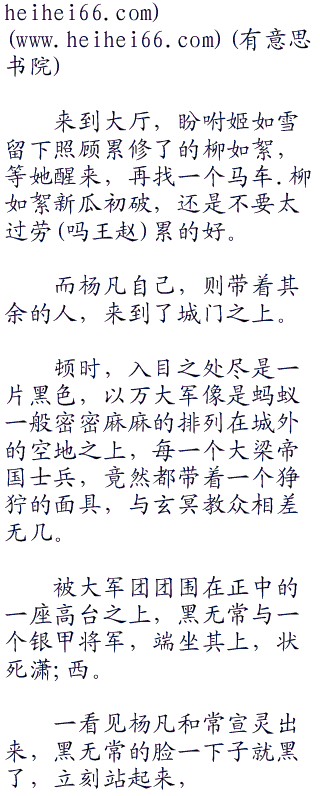 heihei66.com)
(www.heihei66.com)(有意思
书院)
来到大厅，盼咐姬如雪
留下照顾累修了的柳如絮，
等她醒来，再找一个马车.柳
如絮新瓜初破，还是不要太
过劳(吗王赵)累的好。
而杨凡自己，则带着其
余的人，来到了城门之上。
顿时，入目之处尽是一
片黑色，以万大军像是蚂蚁
一般密密麻麻的排列在城外
的空地之上，每一个大梁帝
国士兵，竟然都带着一个狰
狞的面具，与玄冥教众相差
无几。
被大军团团围在正中的
一座高台之上，黑无常与一
个银甲将军，端坐其上，状
死潇;西。
一看见杨凡和常宣灵出
来，黑无常的脸一下子就黑
了，立刻站起来，